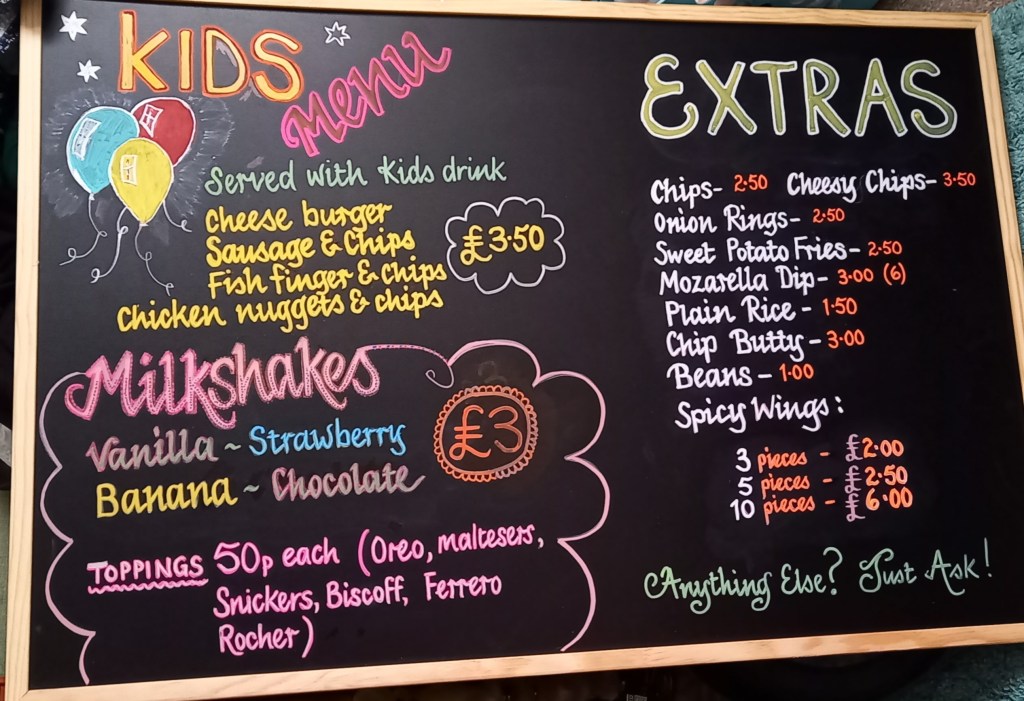 KIDS
Menu
Served with Kids drink
Cheese burger
Sausage & Chips
Fish finger & Chips
Chicken nuggets & chips
£3.50
Milkshakes
Vanilla ~ Strawberry
Banana ~ Chocolate
£3
TOPPINGS 50p each (Oreo, maltesers,
Snickers, Biscoff, Ferrero
Rocher)
EXTRAS
Chips- 2.50 Cheesy Chips- 3.50
Onion Rings- 2.50
Sweet Potato Fries- 2.50
Mozarella Dip- 3.00 (6)
Plain Rice - 1.50
Chip Butty- 3.00
Beans - 1.00
Spicy Wings:
3 pieces - £2.00
5 pieces - £2.50
10 pieces - £6.00
Anything Else? Just Ask!